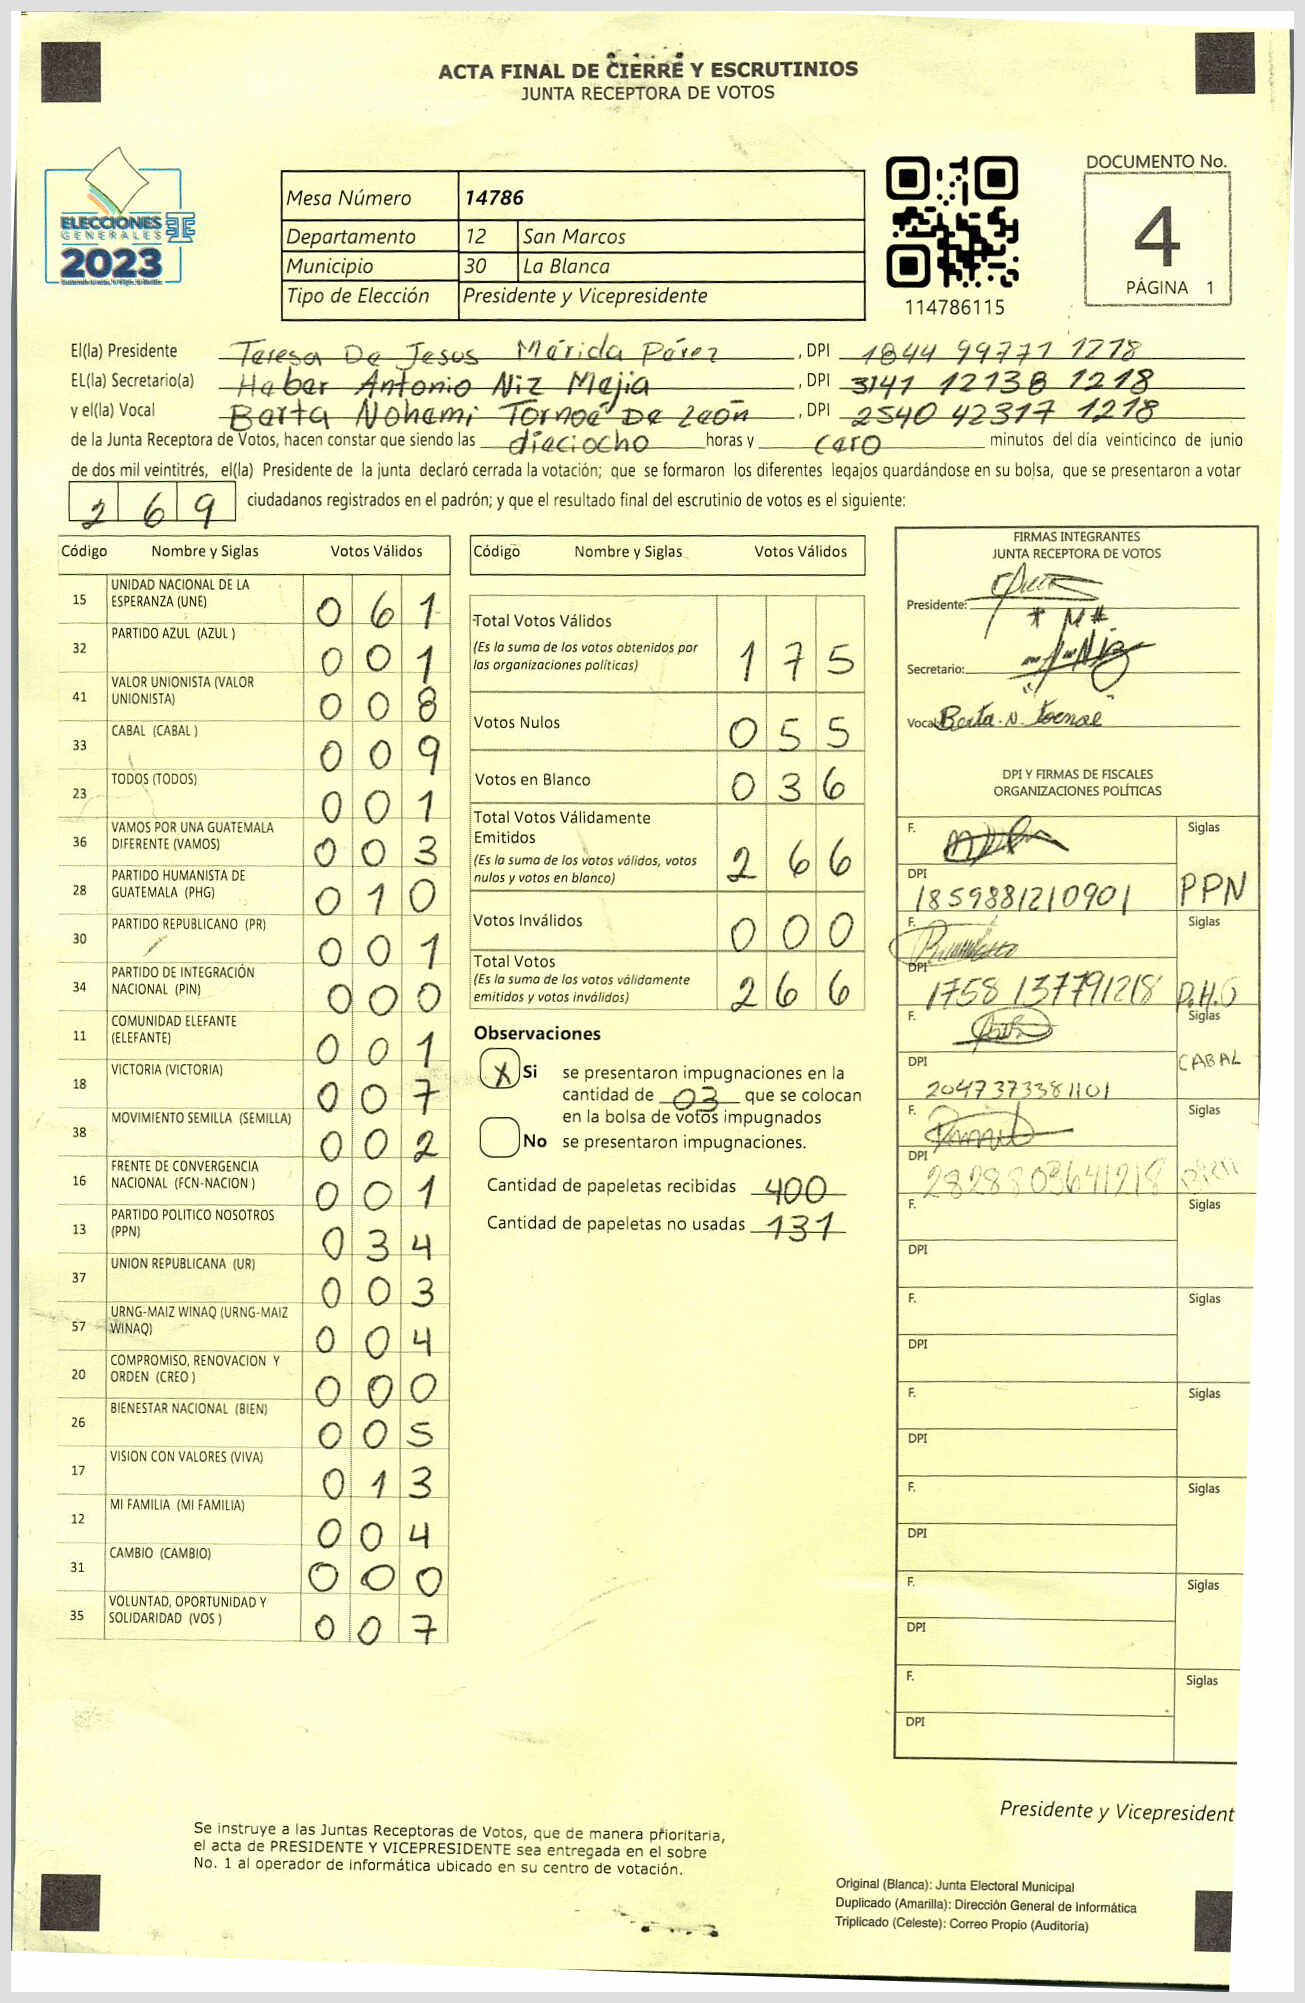 ACTA FINAL DE CIERRE Y ESCRUTINIOS
JUNTA RECEPTORA DE VOTOS
ELECCIONES
GENERALES
2023
Mesa Número 14786
Departamento 12 San Marcos
Municipio 30 La Blanca
Tipo de Elección Presidente y Vicepresidente
114786115
DOCUMENTO No.
4
PÁGINA 1
El(la) Presidente Teresa De Jesus Mérida Pérez , DPI 1844 99771 1218
EL(la) Secretario(a) Heber Antonio Niz Mejia , DPI 3141 12138 1218
y el(la) Vocal Berta Nohemi Tornoé De León , DPI 2540 42317 1218
de la Junta Receptora de Votos, hacen constar que siendo las dieciocho horas y cero minutos del día veinticinco de junio
de dos mil veintitrés, el(la) Presidente de la junta declaró cerrada la votación; que se formaron los diferentes legajos guardándose en su bolsa, que se presentaron a votar
269 ciudadanos registrados en el padrón; y que el resultado final del escrutinio de votos es el siguiente:
Código Nombre y Siglas Votos Válidos
15 UNIDAD NACIONAL DE LA
ESPERANZA (UNE) 061
32 PARTIDO AZUL (AZUL ) 001
41 VALOR UNIONISTA (VALOR
UNIONISTA) 008
33 CABAL (CABAL ) 009
23 TODOS (TODOS) 001
36 VAMOS POR UNA GUATEMALA
DIFERENTE (VAMOS) 003
28 PARTIDO HUMANISTA DE
GUATEMALA (PHG) 010
30 PARTIDO REPUBLICANO (PR) 001
34 PARTIDO DE INTEGRACIÓN
NACIONAL (PIN) 000
11 COMUNIDAD ELEFANTE
(ELEFANTE) 001
18 VICTORIA (VICTORIA) 007
38 MOVIMIENTO SEMILLA (SEMILLA) 002
16 FRENTE DE CONVERGENCIA
NACIONAL (FCN-NACION ) 001
13 PARTIDO POLITICO NOSOTROS
(PPN) 034
37 UNION REPUBLICANA (UR) 003
57 URNG-MAIZ WINAQ (URNG-MAIZ
WINAQ) 004
20 COMPROMISO, RENOVACION Y
ORDEN (CREO ) 000
26 BIENESTAR NACIONAL (BIEN) 005
17 VISION CON VALORES (VIVA) 013
12 MI FAMILIA (MI FAMILIA) 004
31 CAMBIO (CAMBIO) 000
35 VOLUNTAD, OPORTUNIDAD Y
SOLIDARIDAD (VOS ) 007
Código Nombre y Siglas Votos Válidos
Total Votos Válidos
(Es la suma de los votos obtenidos por
las organizaciones políticas) 175
Votos Nulos 055
Votos en Blanco 036
Total Votos Válidamente
Emitidos
(Es la suma de los votos válidos, votos
nulos y votos en blanco) 266
Votos Inválidos 000
Total Votos
(Es la suma de los votos válidamente
emitidos y votos inválidos) 266
Observaciones
X Si se presentaron impugnaciones en la
cantidad de 03 que se colocan
en la bolsa de votos impugnados
No se presentaron impugnaciones.
Cantidad de papeletas recibidas 400
Cantidad de papeletas no usadas 131
FIRMAS INTEGRANTES
JUNTA RECEPTORA DE VOTOS
Presidente:
Secretario: Niz
Vocal Berta. N. Tornoé
DPI Y FIRMAS DE FISCALES
ORGANIZACIONES POLÍTICAS
F. Siglas
DPI 1859881210901 PPN
F. Siglas
DPI 1758 137791218 P.H.G
F. Siglas
DPI 2047373381101 CABAL
F. Siglas
DPI 2828803641218
F. Siglas
DPI
F. Siglas
DPI
F. Siglas
DPI
F. Siglas
DPI
F. Siglas
DPI
F. Siglas
DPI
Presidente y Vicepresident
Se instruye a las Juntas Receptoras de Votos, que de manera prioritaria,
el acta de PRESIDENTE Y VICEPRESIDENTE sea entregada en el sobre
No. 1 al operador de informática ubicado en su centro de votación.
Original (Blanca): Junta Electoral Municipal
Duplicado (Amarilla): Dirección General de Informática
Triplicado (Celeste): Correo Propio (Auditoría)